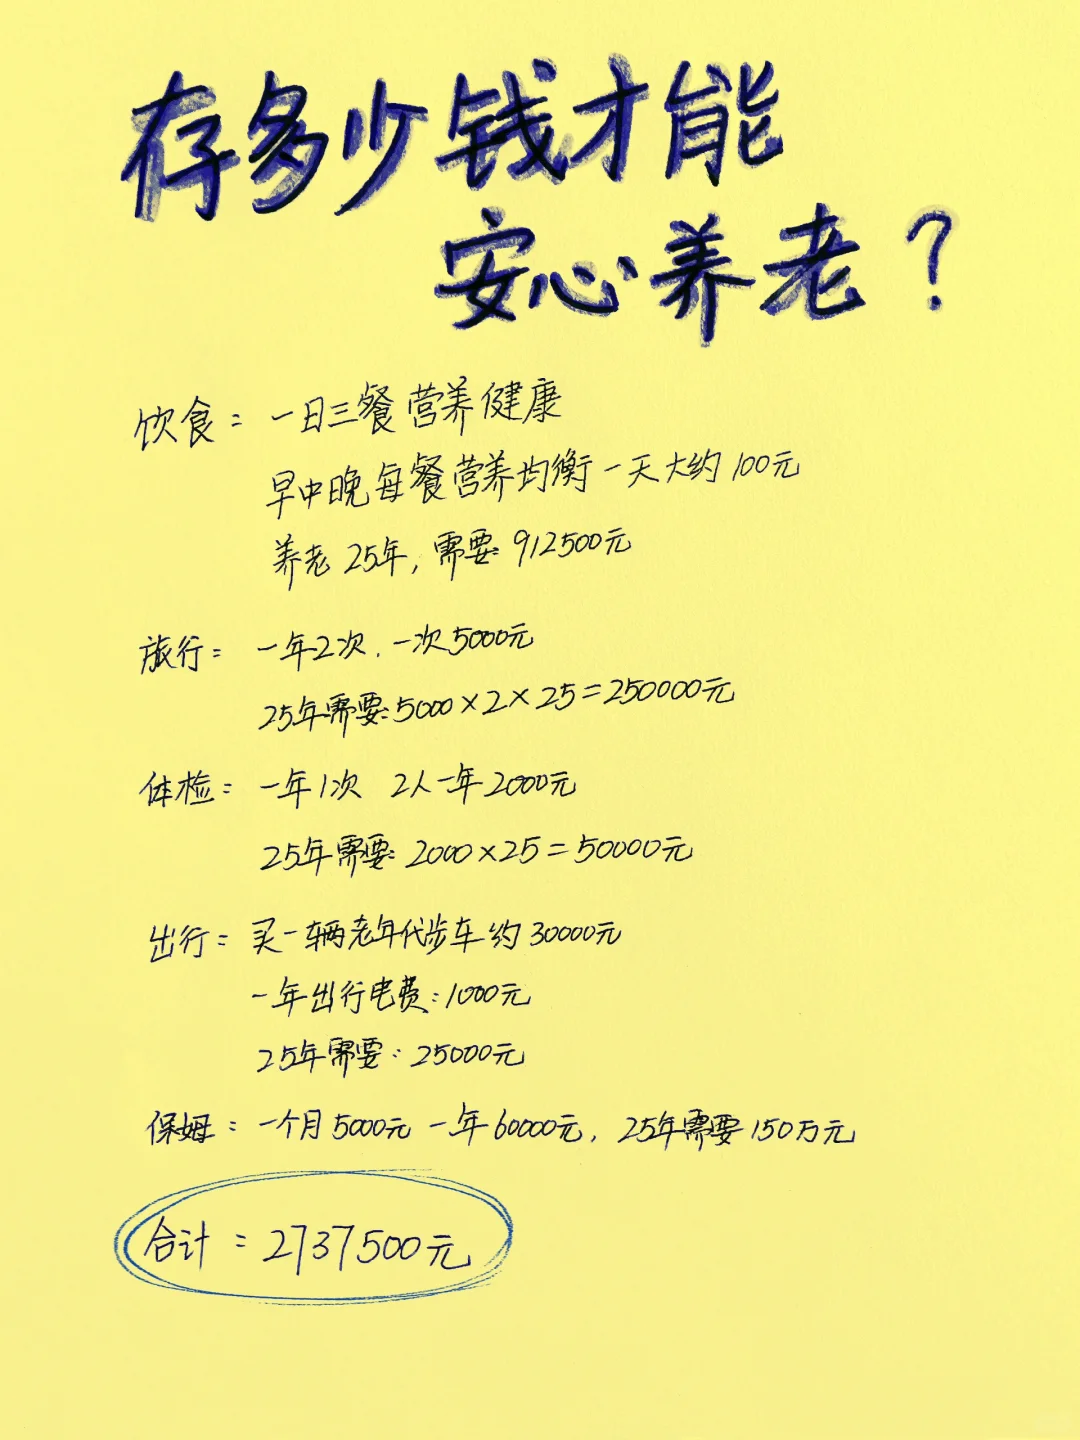 存多少钱才能
安心养老?
饮食: 一日三餐营养健康
早中晚每餐营养均衡一天大约100元
养老25年,需要:912500元
旅行: 一年2次.一次5000元
25年需要:5000×2×25=250000元
体检: 一年1次 2人一年2000元
25年需要:2000×25=50000元
出行: 买一辆老年代步车约30000元
一年出行电费:1000元
25年需要:25000元
保姆: 一个月5000元一年60000元,25年需要150万元
合计:2737500元